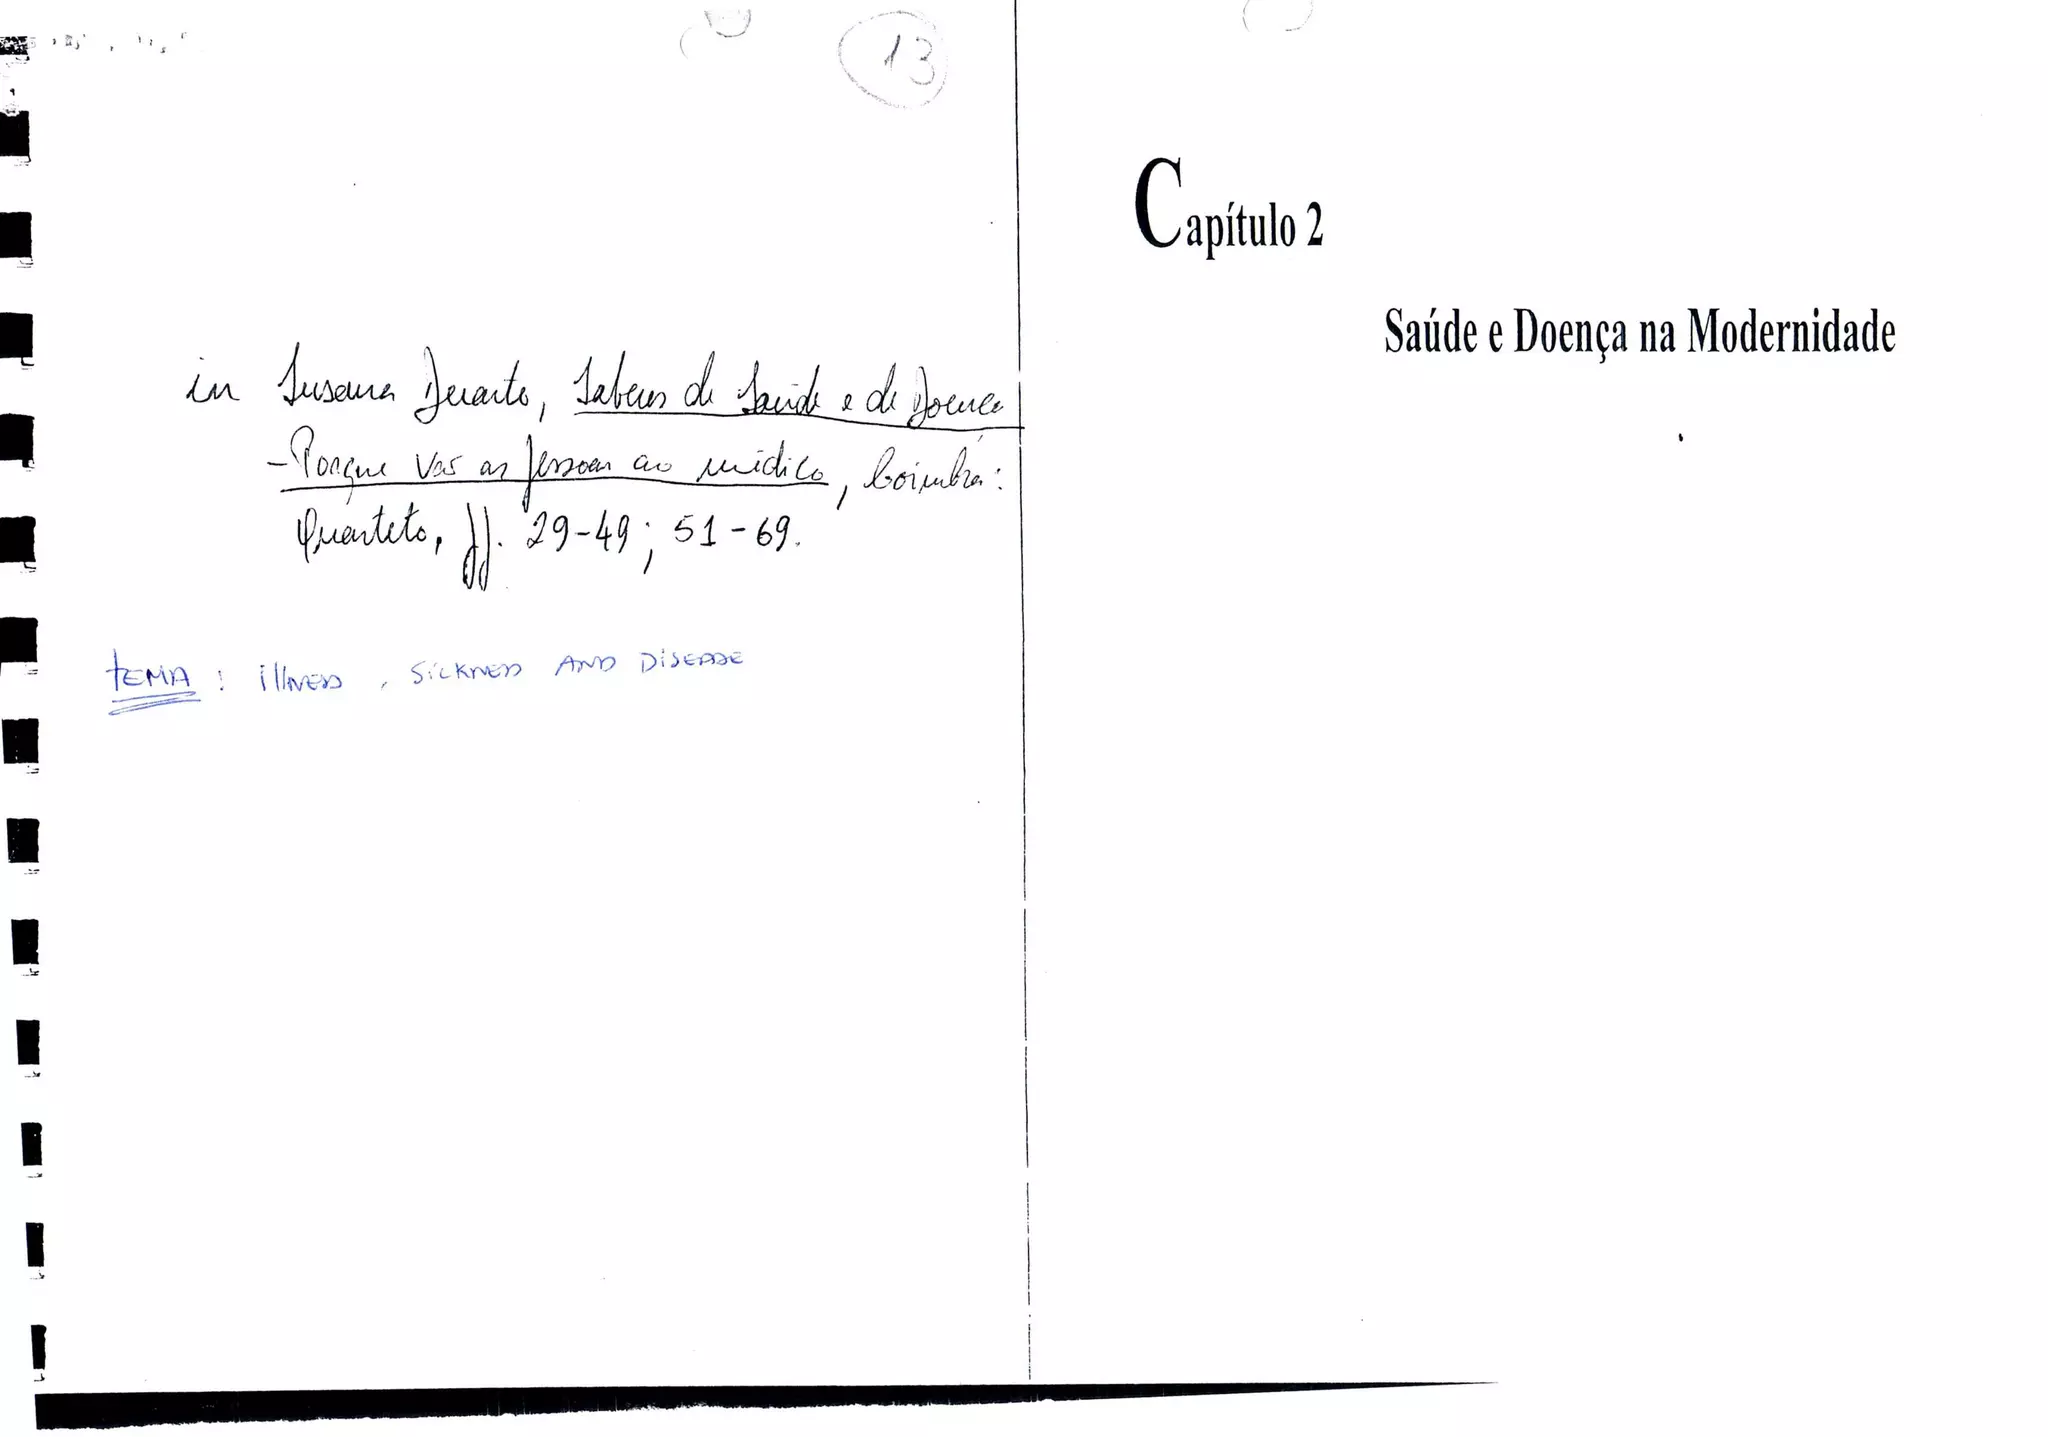 13
in Susana Duarte, Saberes de Saúde e de Doença
- Porque vão as pessoas ao médico, Coimbra:
Quarteto, pp. 29-49; 51-69.
TEMA : illNESS , SiCKNESS AND DiSEASE
Capítulo 2
Saúde e Doença na Modernidade